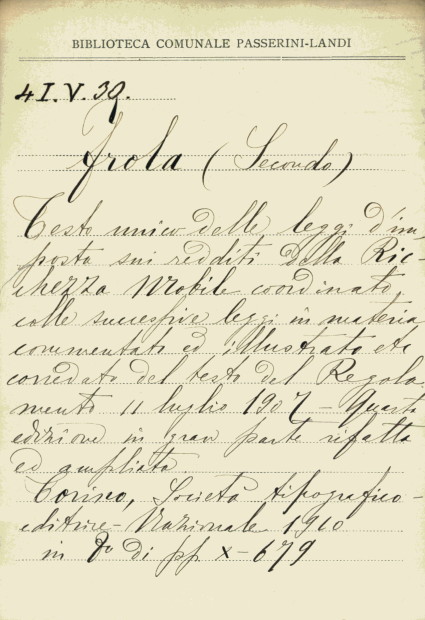 BIBLIOTECA COMUNALE PASSERINI-LANDI
4 I. V. 39.
Frola (Secondo)
Testo unico delle leggi d'im,
posta sui redditi della Ric-
chezza Mobile coordinato
colle successive leggi in materia
commentato ed illustrato etc
corredato del testo del Regola
mento 11 luglio 1907 - Quarta
edizione in gran parte rifatta
ed ampliata.
Torino, Società tipografico-
editrice - Nazionale 1910
in 8o di pp X-679